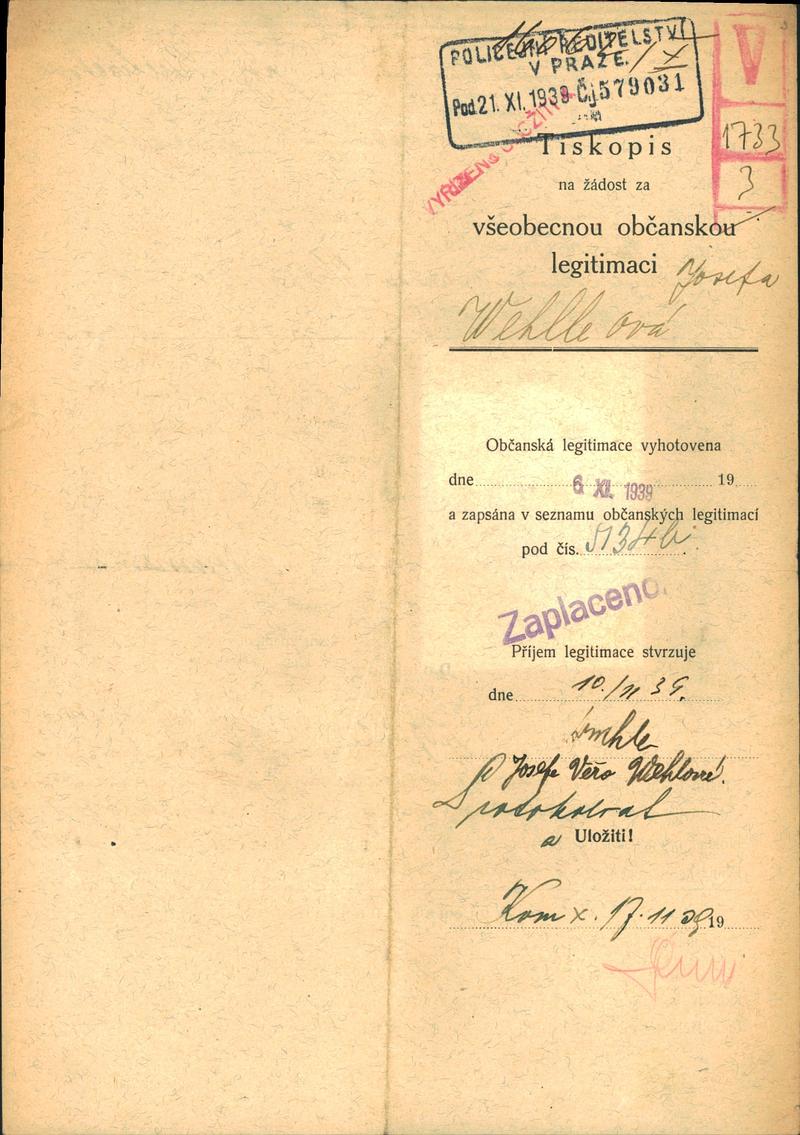 POLICEJNÍ ŘEDITELSTVÍ
V PRAZE.
Pod. 21. XI. 1939 Čj. 579031
VYŘÍZENO
V
1733
3
Tiskopis
na žádost za
všeobecnou občanskou
legitimaci Josefa
Wehlle ová
Občanská legitimace vyhotovena
dne 6. XI. 1939 19
a zapsána v seznamu občanských legitimací
pod čís.
Zaplaceno.
Příjem legitimace stvrzuje
dne 10./11 39.
Josefe Wehlové.
a Uložiti!
Kom x. 17. 11 39 19